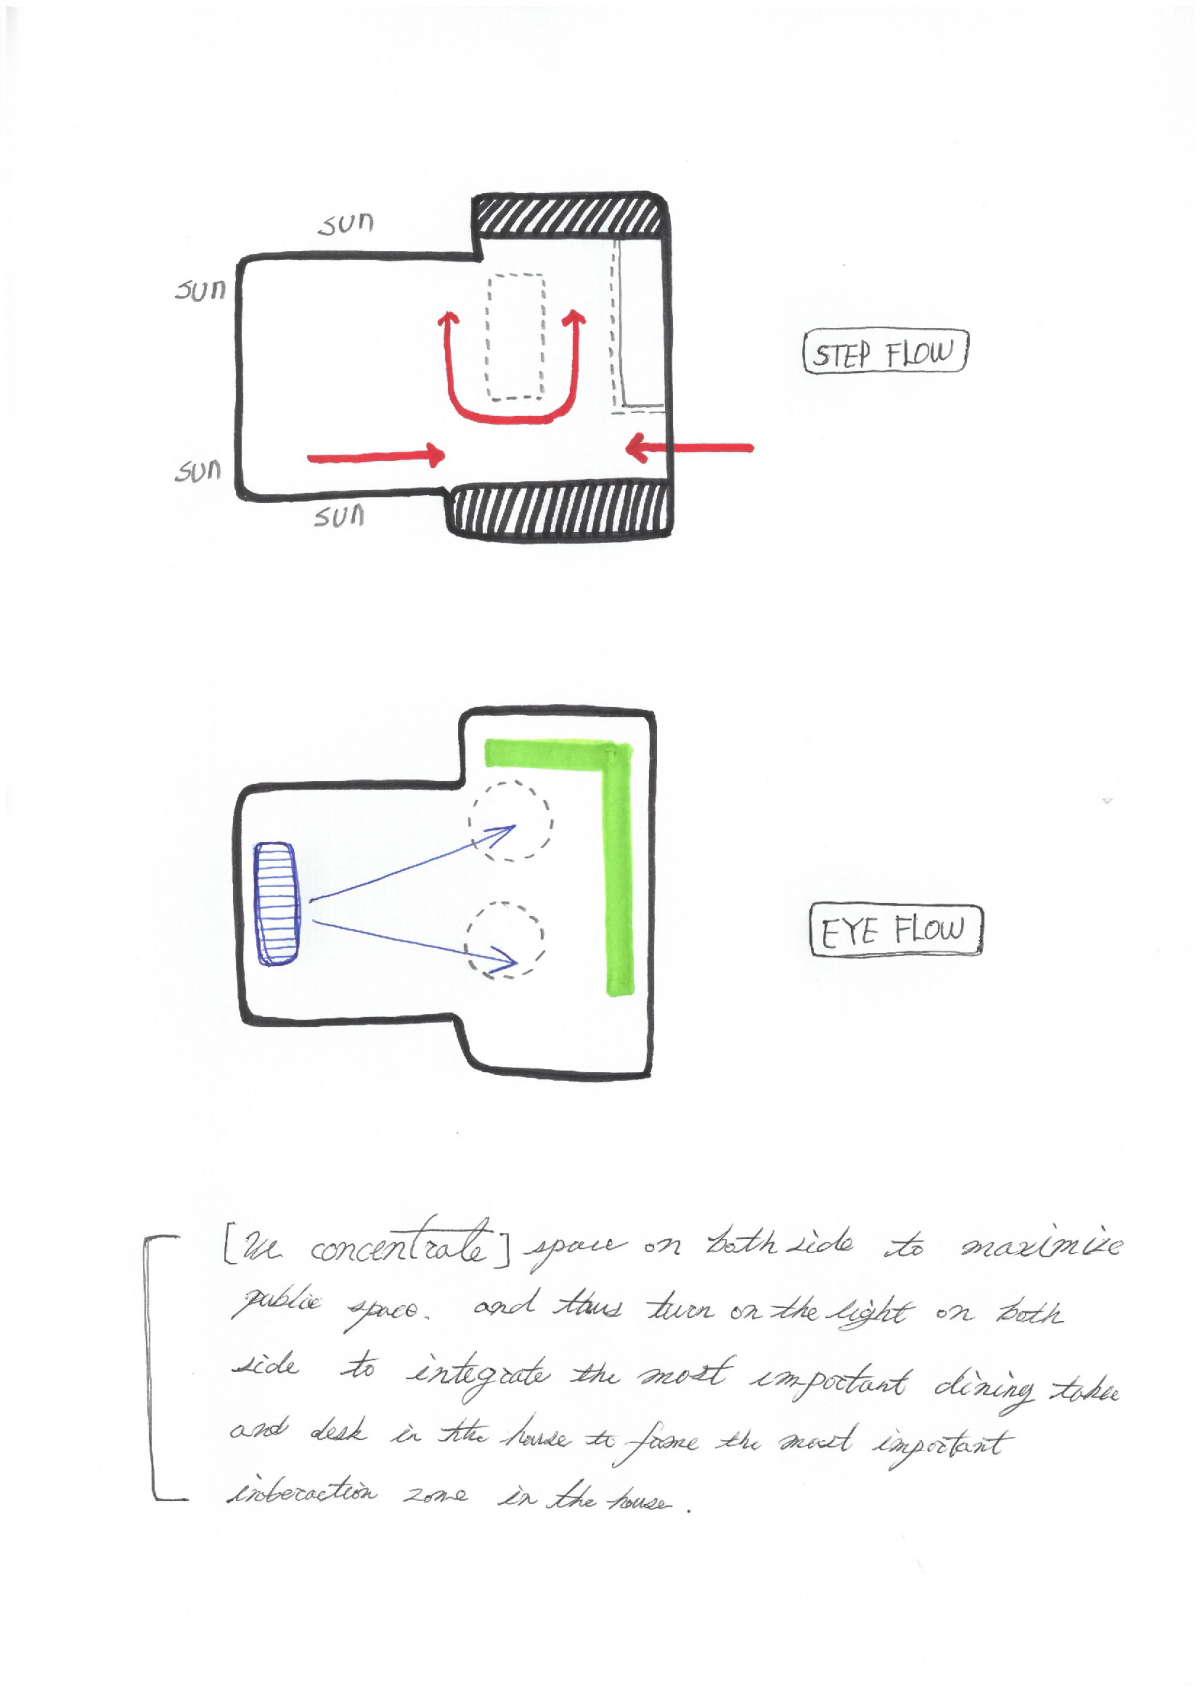 sun
sun
STEP FLOW
sun
sun
EYE FLOW
[We concentrate] space on both side to maximize
public space. and thus turn on the light on both
side to integrate the most important dining table
and desk in the house to fome the most important
interaction zone in the house.